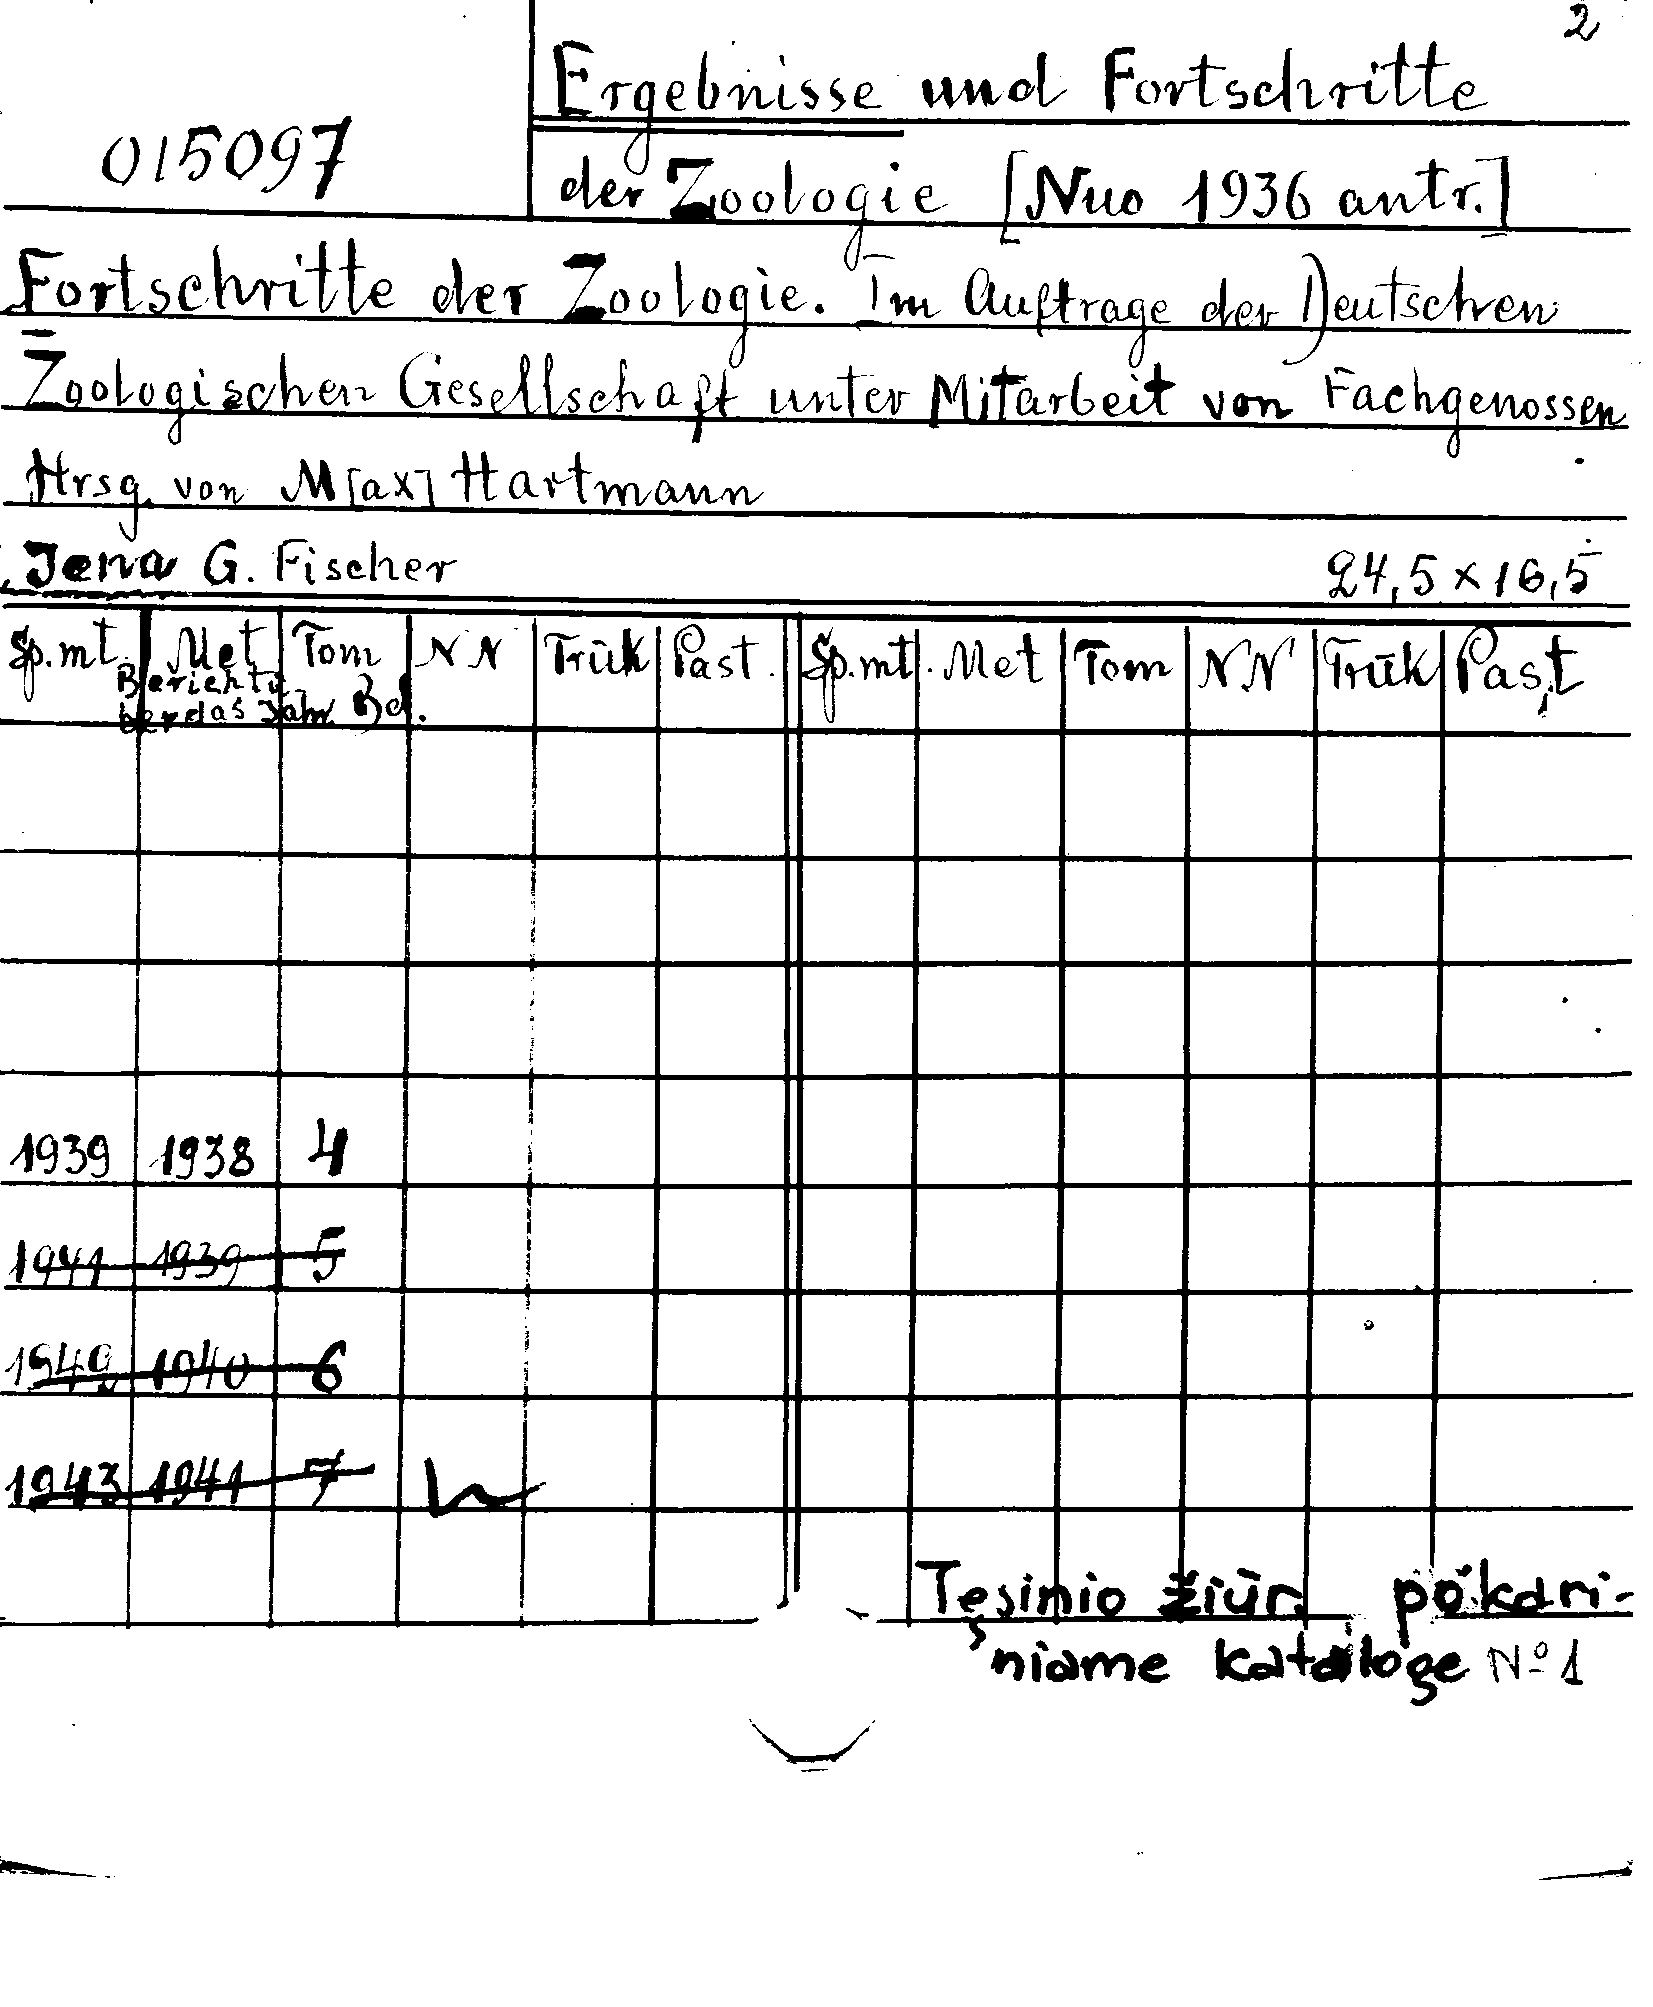 2
Ergebnisse und Fortschritte
015097
der Zoologie [Nuo 1936 antr.]
Fortschritte der Zoologie. Im Auftrage der Deutschen
Zoologischen Gesellschaft unter Mitarbeit von Fachgenossen
Hrsg. von M[ax] Hartmann
Jena G. Fischer 24,5 × 16,5
Sp.mt. Met Tom NN Trūk Past. Sp.mt. Met Tom NN Trūk Past.
Bericht ü
ber das Jahr Bd.
1939 1938 4
1941 1939 5
1942 1940 6
1943 1941 7
Tęsinio žiūr. pokari-
niame kataloge № 1